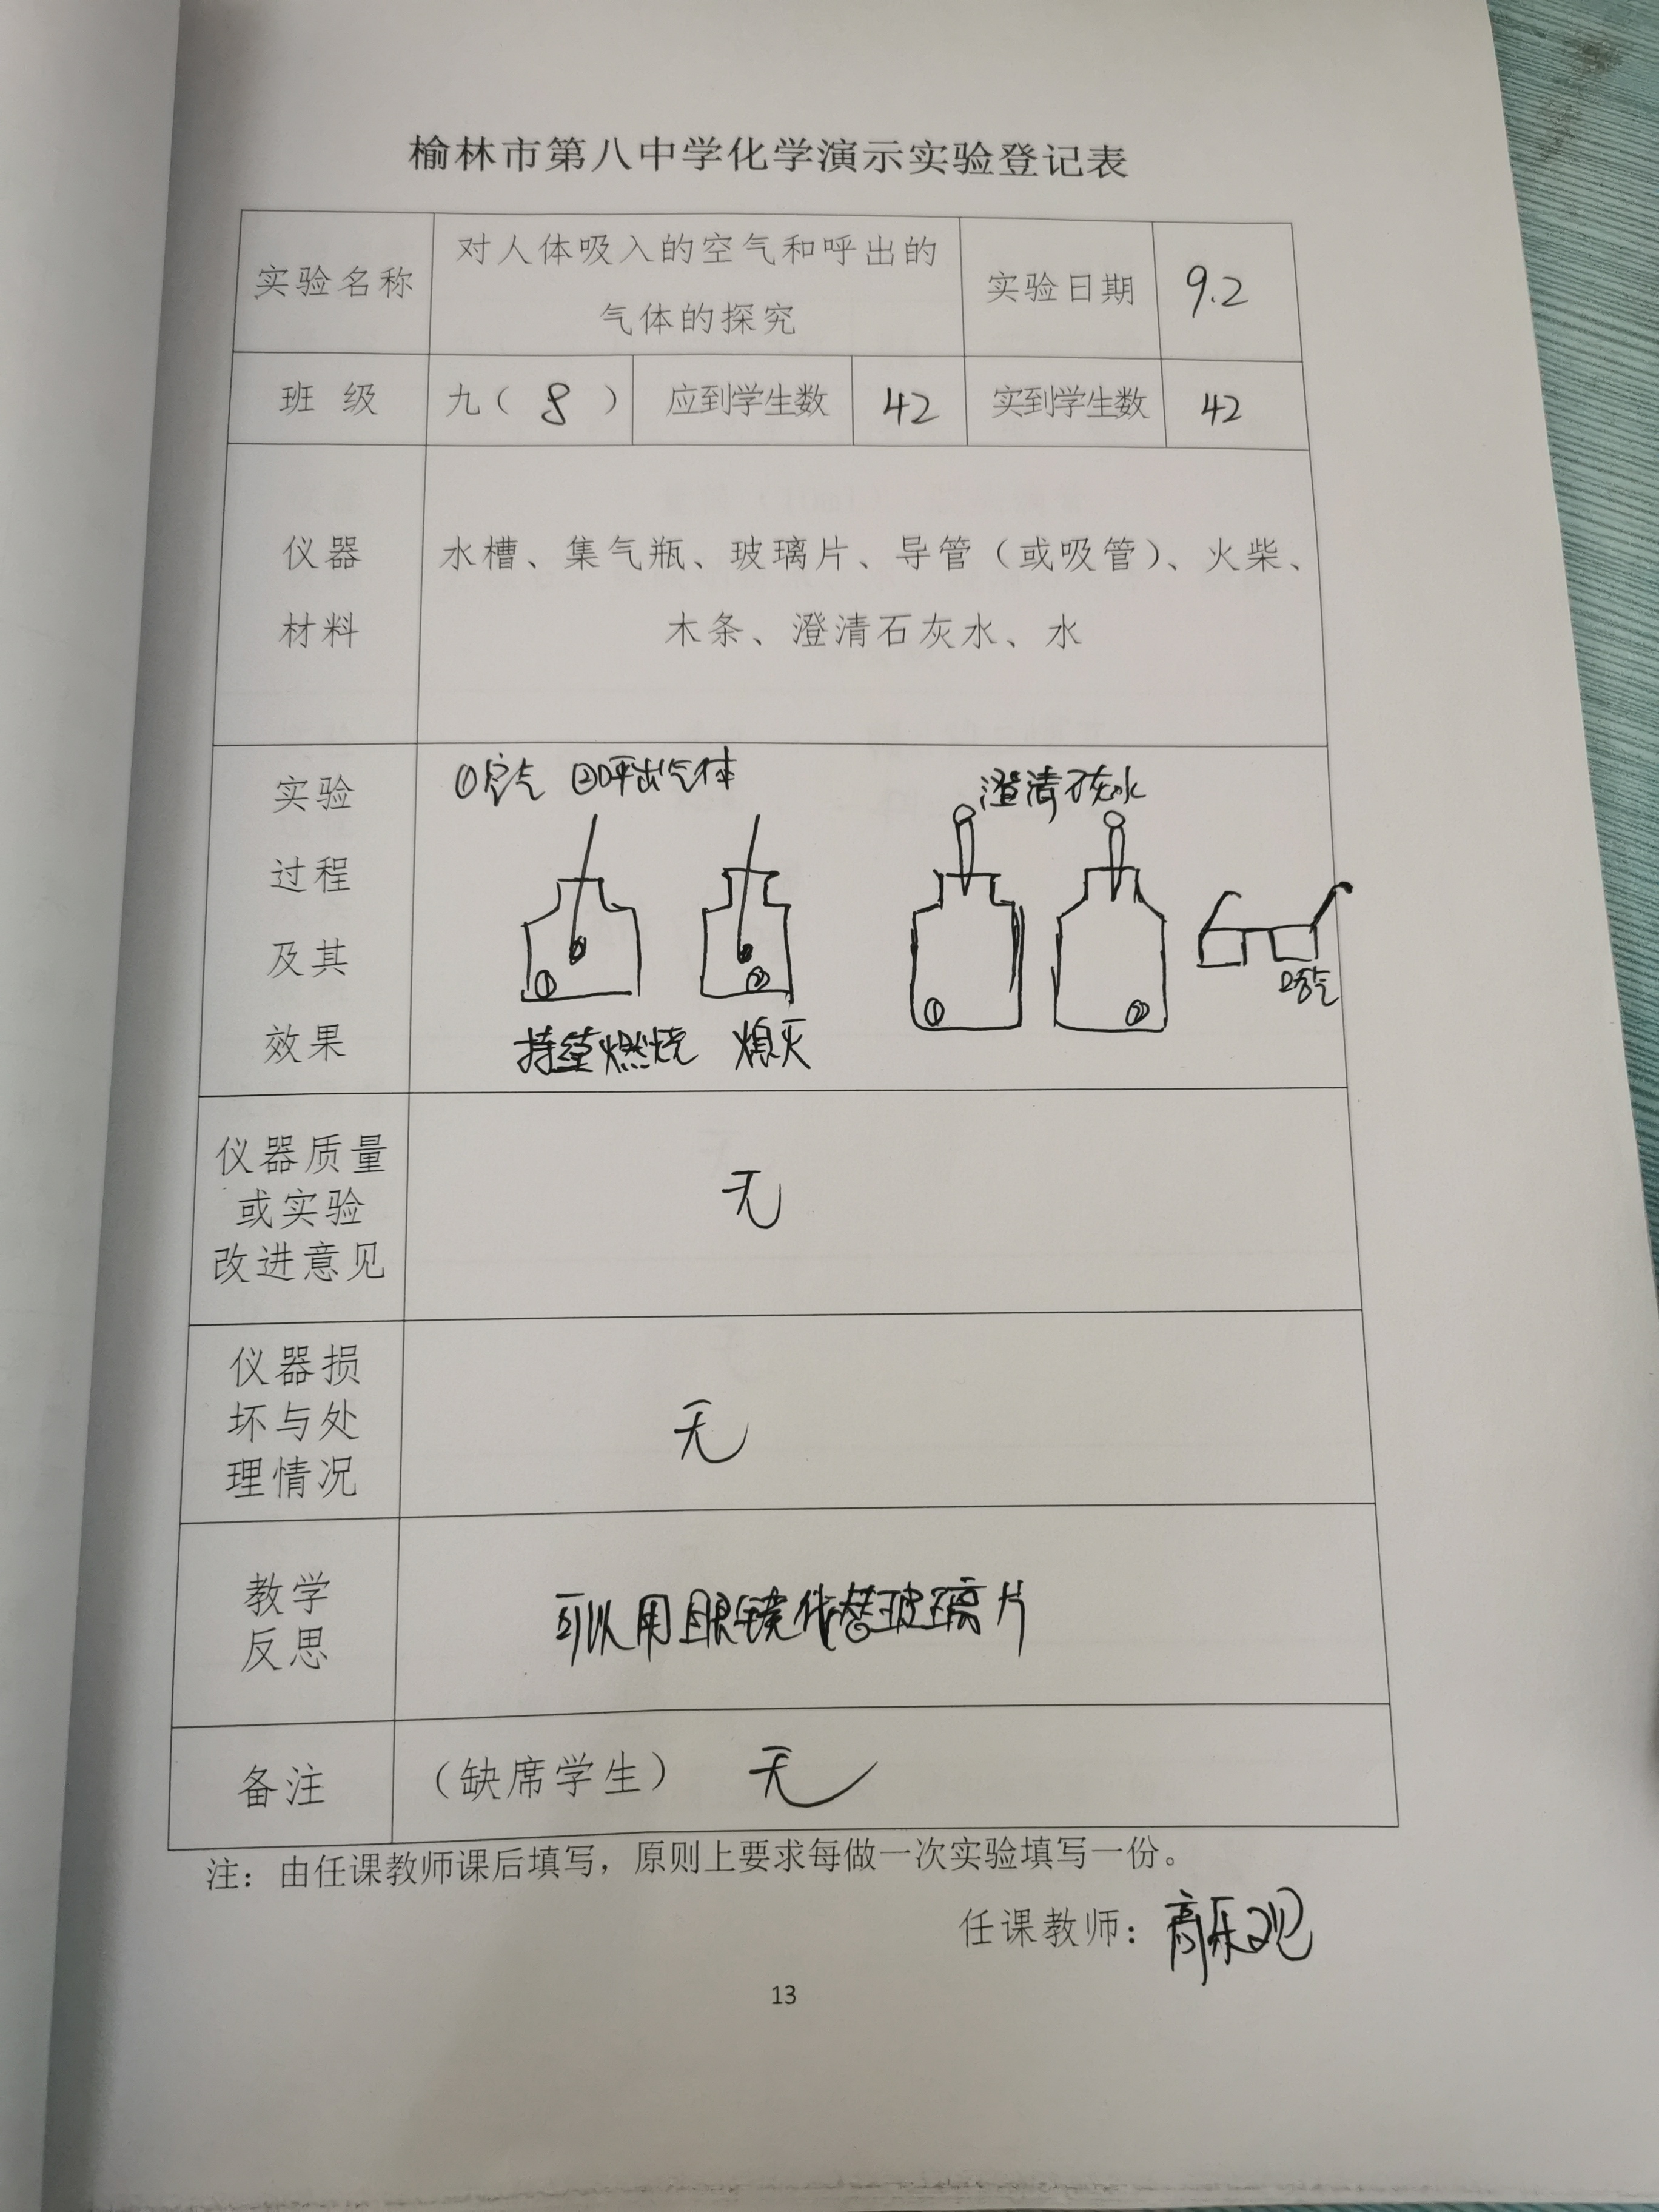 榆林市第八中学化学演示实验登记表
实验名称
对人体吸入的空气和呼出的
气体的探究
实验日期
9.2
班 级
九( 8 )
应到学生数
42
实到学生数
42
仪器
材料
水槽、集气瓶、玻璃片、导管(或吸管)、火柴、
木条、澄清石灰水、水
实验
过程
及其
效果
①空气 ②呼出气体
澄清石灰水
① ② ① ②
哈气
持续燃烧 熄灭
仪器质量
或实验
改进意见
无
仪器损
坏与处
理情况
无
教学
反思
可以用眼镜代替玻璃片
备注
(缺席学生) 无
注:由任课教师课后填写,原则上要求每做一次实验填写一份。
任课教师:高乐观
13